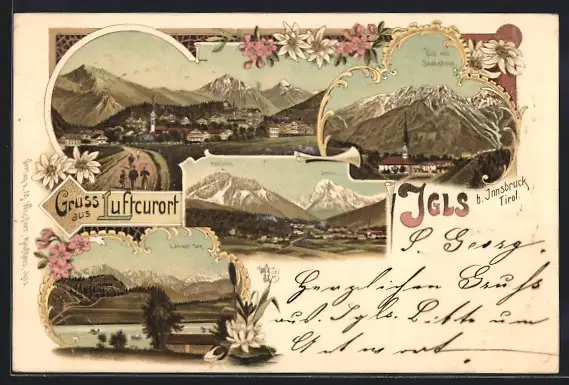 Vill mit
Saile
Serles
Lanser See
Gruss
aus
Luftcurort
IGLS
b. Innsbruck
Tirol.
Georg.
Herzlichen Gruß
aus Igls. Bitte um
Antwort.